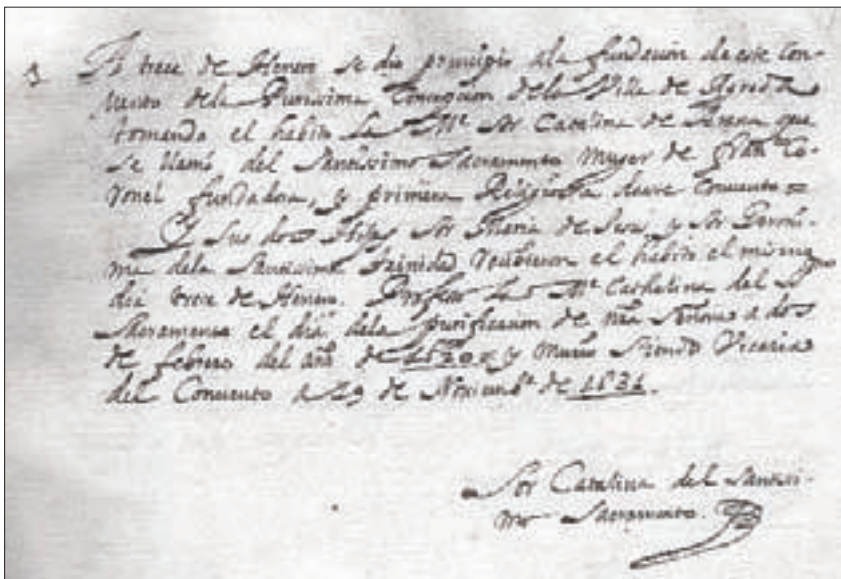 A trece de Henero se dio principio ala fundacion de este Con-
vento dela Purissima Concepcion dela Villa de Agreda
tomando el habito la Me. Sor Catalina de Arana que
se llamó del Santissimo Sacramento Muger de Franco. Co-
ronel fundadora, y primera Religiosa de este Convento =
Y sus dos Hijas Sor Maria de Jesus, y Sor Geroni-
ma dela Santissima Trinidad recibieron el habito el mismo
dia trece de Henero. Professó la Me. Cathalina del Smo
Sacramento el dia dela purificacion de nra Señora a dos
de febrero del año de 1620 y murió siendo Vicaria
del Convento a 29 de Noviembre de
Sor Catalina del Santissi-
mo Sacramento.